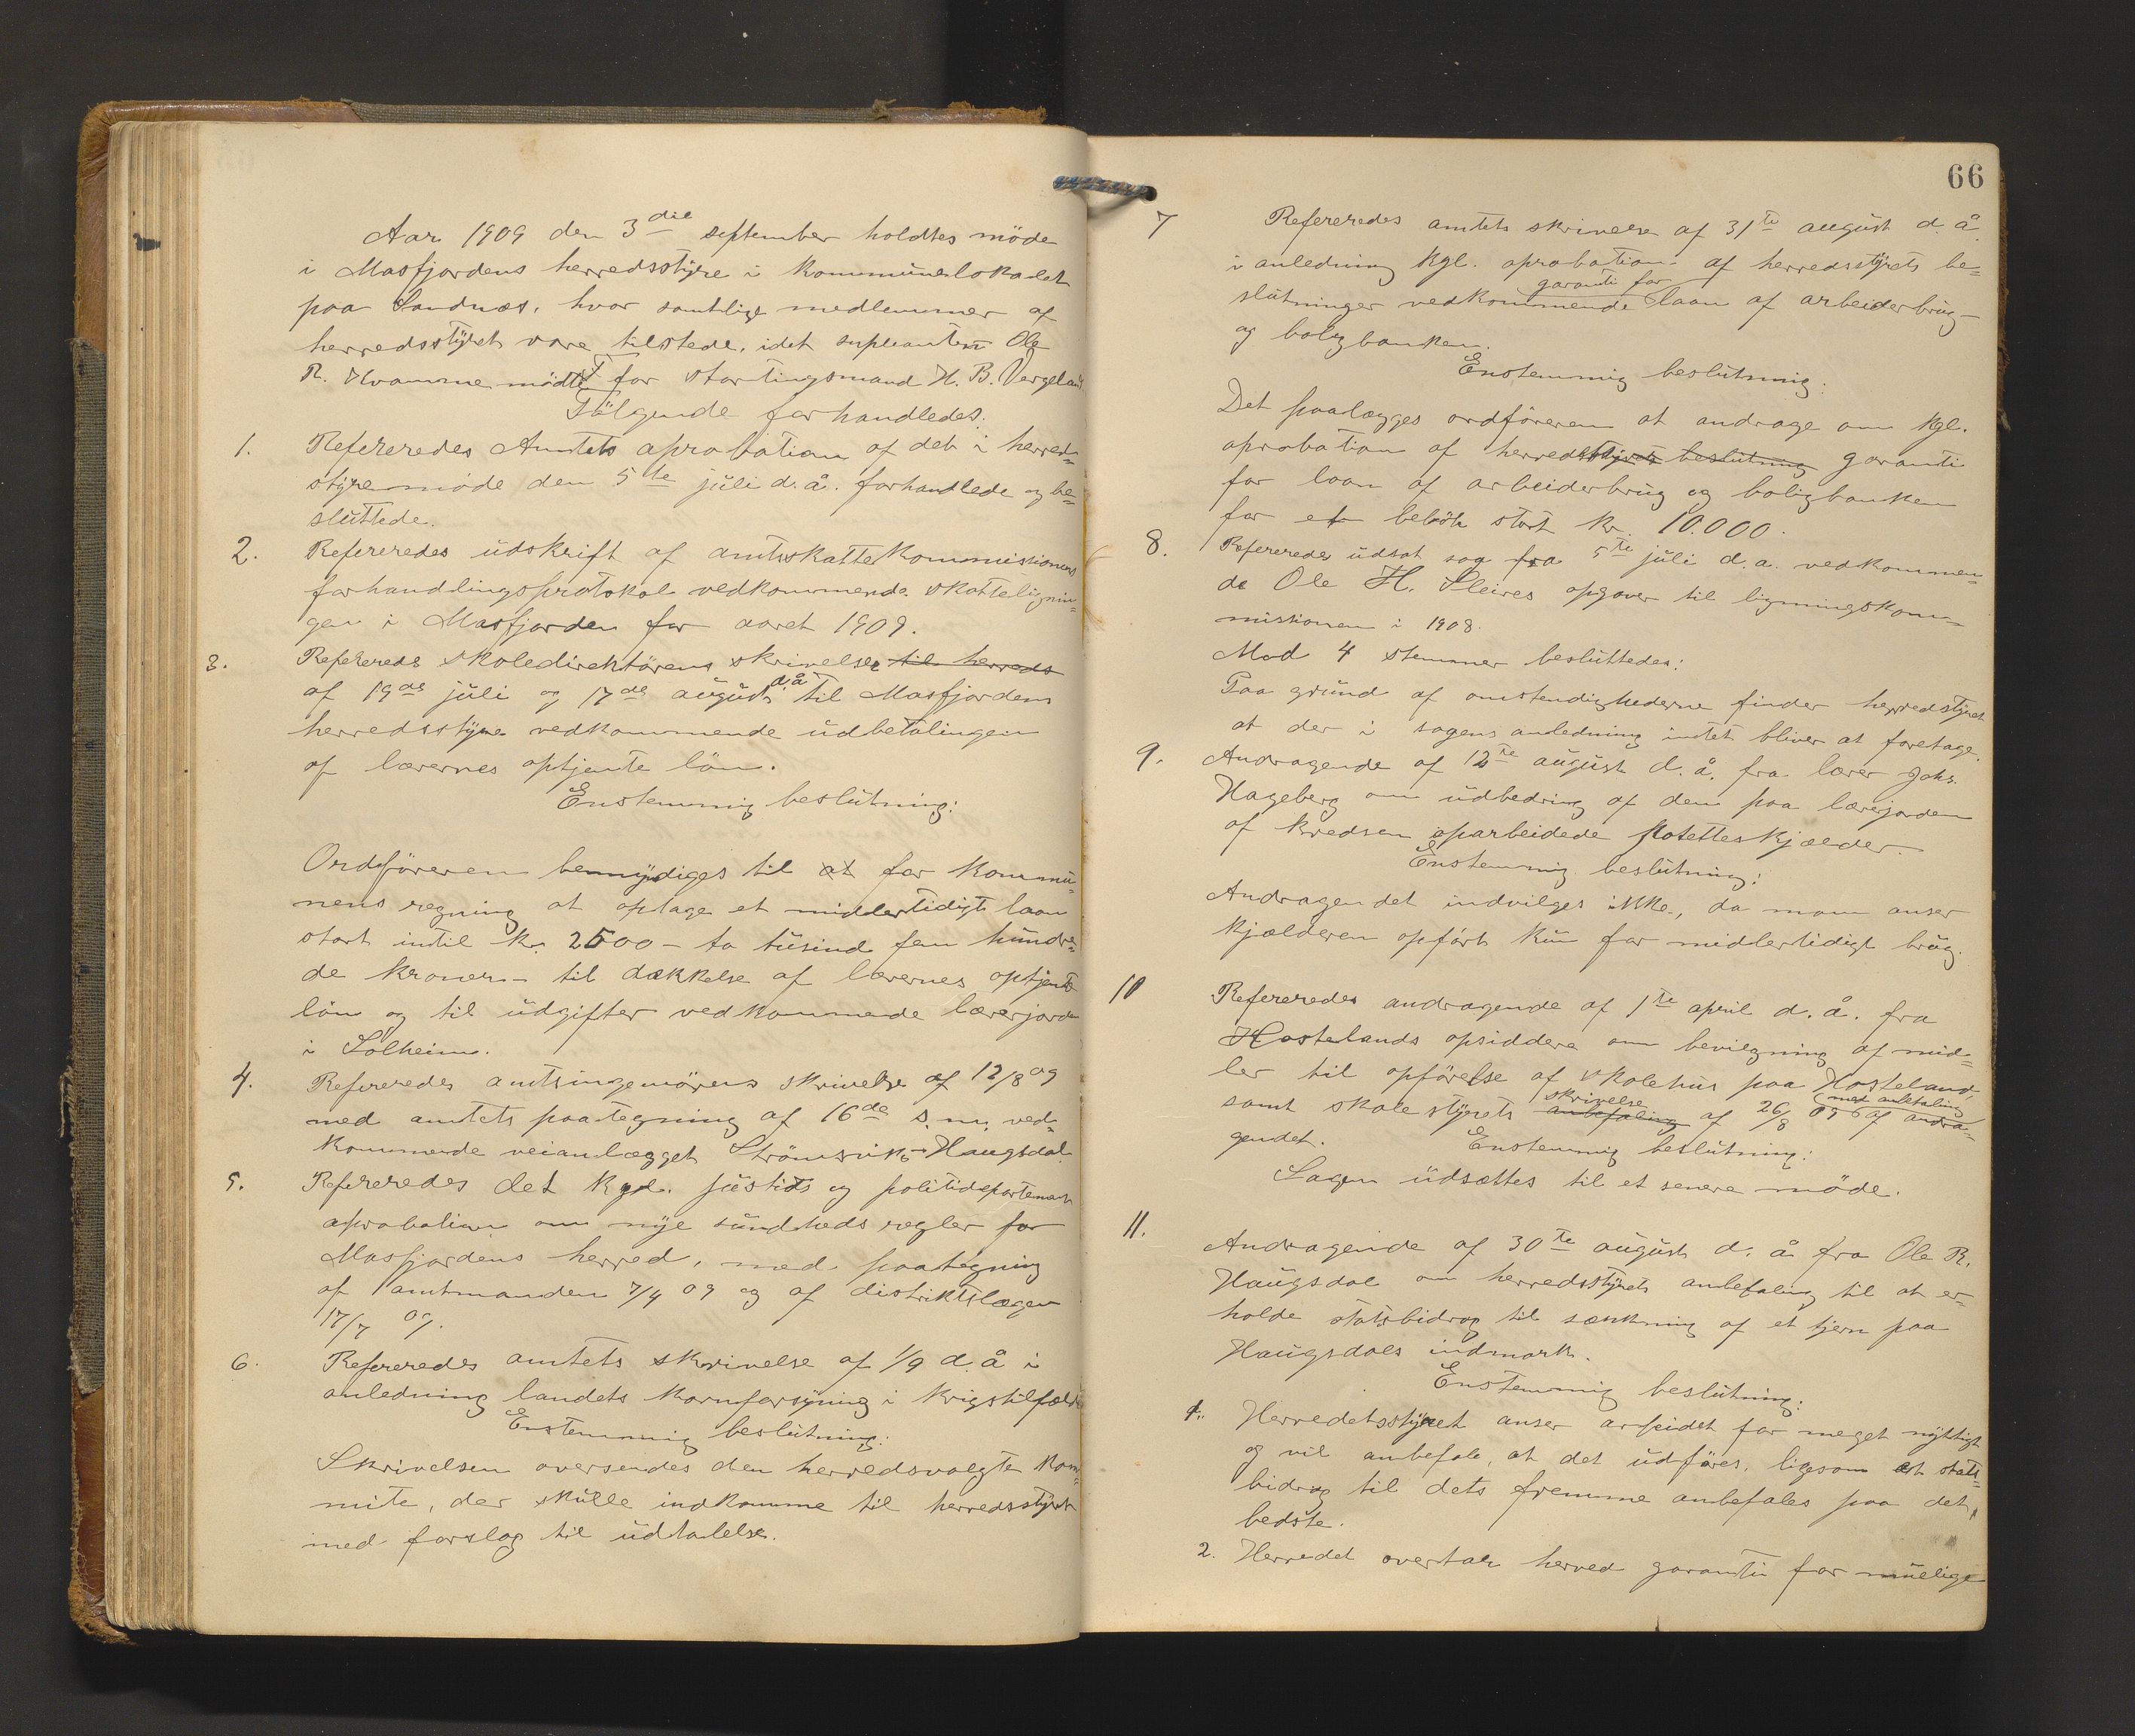 Aar 1909 den 3die september holdtes möde
i Masfjordens herredsstyre i kommunelokalet
paa Sandnæs, hvor samtlige medlemmer af
herredsstyret vare tilstede, idet supleanten Ole
R. Kvamme mödte for stortingsmand H. B. Vergeland.
Fölgende forhandledes:
1. Refereredes Amtets aprobation af det i herred=
styremöde den 5te juli d.å. forhandlede og be=
sluttede.
2. Refereredes udskrift af amtsskattekommissionens
forhandlingsprotokol vedkommende skattelignin=
gen i Masfjorden for aaret 1909.
3. Refereredes skoledirektörens skrivelse til herreds
af 19de juli og 17de august d.å. til Masfjordens
herredsstyre vedkommende udbetalingen
af lærernes optjente lön.
Enstemmig beslutning:
Ordföreren bemyndiges til at for kommu=
nens regning at optage et midlertidigt laan
stort indtil kr. 2500 - to tusind fem hundre=
de kroner - til dækkelse af lærernes optjente
lön og til udgifter vedkommende lærerjorden
i Solheim.
4. Refereredes amtsingeniörens skrivelse af 12/8 09
med amtets paategning af 16de s.m. ved=
kommende veianlægget Strömsvik - Haugsdal.
5. Refereredes det kgl. justits og politidepartement
aprobation om nye sundhedsregler for
Masfjordens herred, med paategning
af amtmanden 7/4 09 og af distriktslægen
17/7 09.
6. Refereredes amtets skrivelse af 1/9 d.å i
anledning landets kornforsyning i krigstilfælde
Enstemmig beslutning:
Skrivelsen oversendes den herredsvalgte kom=
mite, der skulle indkomme til herredsstyret
med forslag til udtalelse.
66
7 Refereredes amtets skrivelse af 31te august d.å.
i anledning kgl. aprobation af herredsstyrets be=
slutninger vedkommende garanti for laan af arbeiderbrug-
og boligbanken.
Enstemmig beslutning:
Det paalægges ordföreren at andrage om kgl.
aprobation af herredsstyrets beslutning garanti
for laan af arbeiderbrug og boligbanken
for et belöb stort kr. 10.000.
8. Refereredes udsat sag fra 5te juli d.a. vedkommen=
de Ole H. Sleires opgaver til ligningskom=
missionen i 1908.
Mod 4 stemmer besluttedes:
Paa grund af omstendighederne finder herredstyret
at der i sagens anledning intet bliver at foretage.
9. Andragende af 12te august d.å. fra lærer Johs.
Hageberg om udbedring af den paa lærerjorden
af kredsen oparbeidede potetteskjælder.
Enstemmig beslutning:
Andragendet indvilges ikke, da man anser
kjælderen opfört kun for midlertidigt brug.
10 Refereredes andragende af 1te april d.å. fra
Hostelands opsiddere om bevilgning af mid=
ler til opförelse af skolehus paa Hosteland,
samt skolestyrets anbefaling skrivelse af 26/8 09 med anbefaling af andra=
gendet.
Enstemmig beslutning:
Sagen udsættes til et senere möde.
11. Andragende af 30te august d.å fra Ole R.
Haugsdal om herredsstyrets anbefaling til at er=
holde statsbidrag til sænkning af et tjern paa
Haugsdals indmark.
Enstemmig beslutning:
1. Herredetsstyret anser arbeidet for meget nyttigt
og vil anbefale, at det udföres, ligesom at stats=
bidrag til dets fremme anbefales paa det
bedste.
2. Herredet overtar herved garanti for mulige